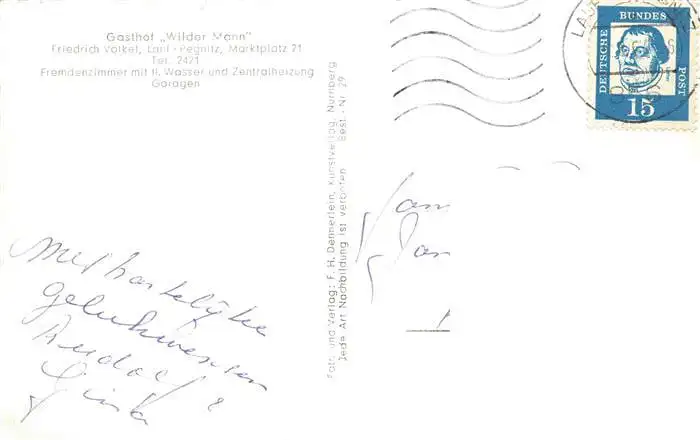 Gasthof „Wilder Mann"
Friedrich Volkel, Lauf - Pegnitz, Marktplatz 21
Tel. 2421
Fremdenzimmer mit fl. Wasser und Zentralheizung
Garagen
Foto und Verlag: F. H. Dannerlein, Kunstverlag, Nürnberg
Jede Art Nachbildung ist verboten Best.-Nr. 29
DEUTSCHE
BUNDES
POST
15
met hartelijke
gelukwensen
Rudolf &